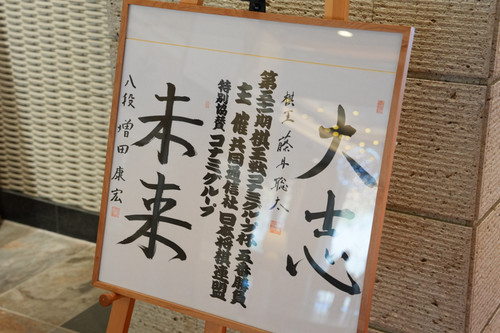 大志
棋王 藤井聡太
第五十一期棋王戦コナミグループ杯 五番勝負
主催 共同通信社 日本将棋連盟
特別協賛 コナミグループ
未来
八段 増田康宏